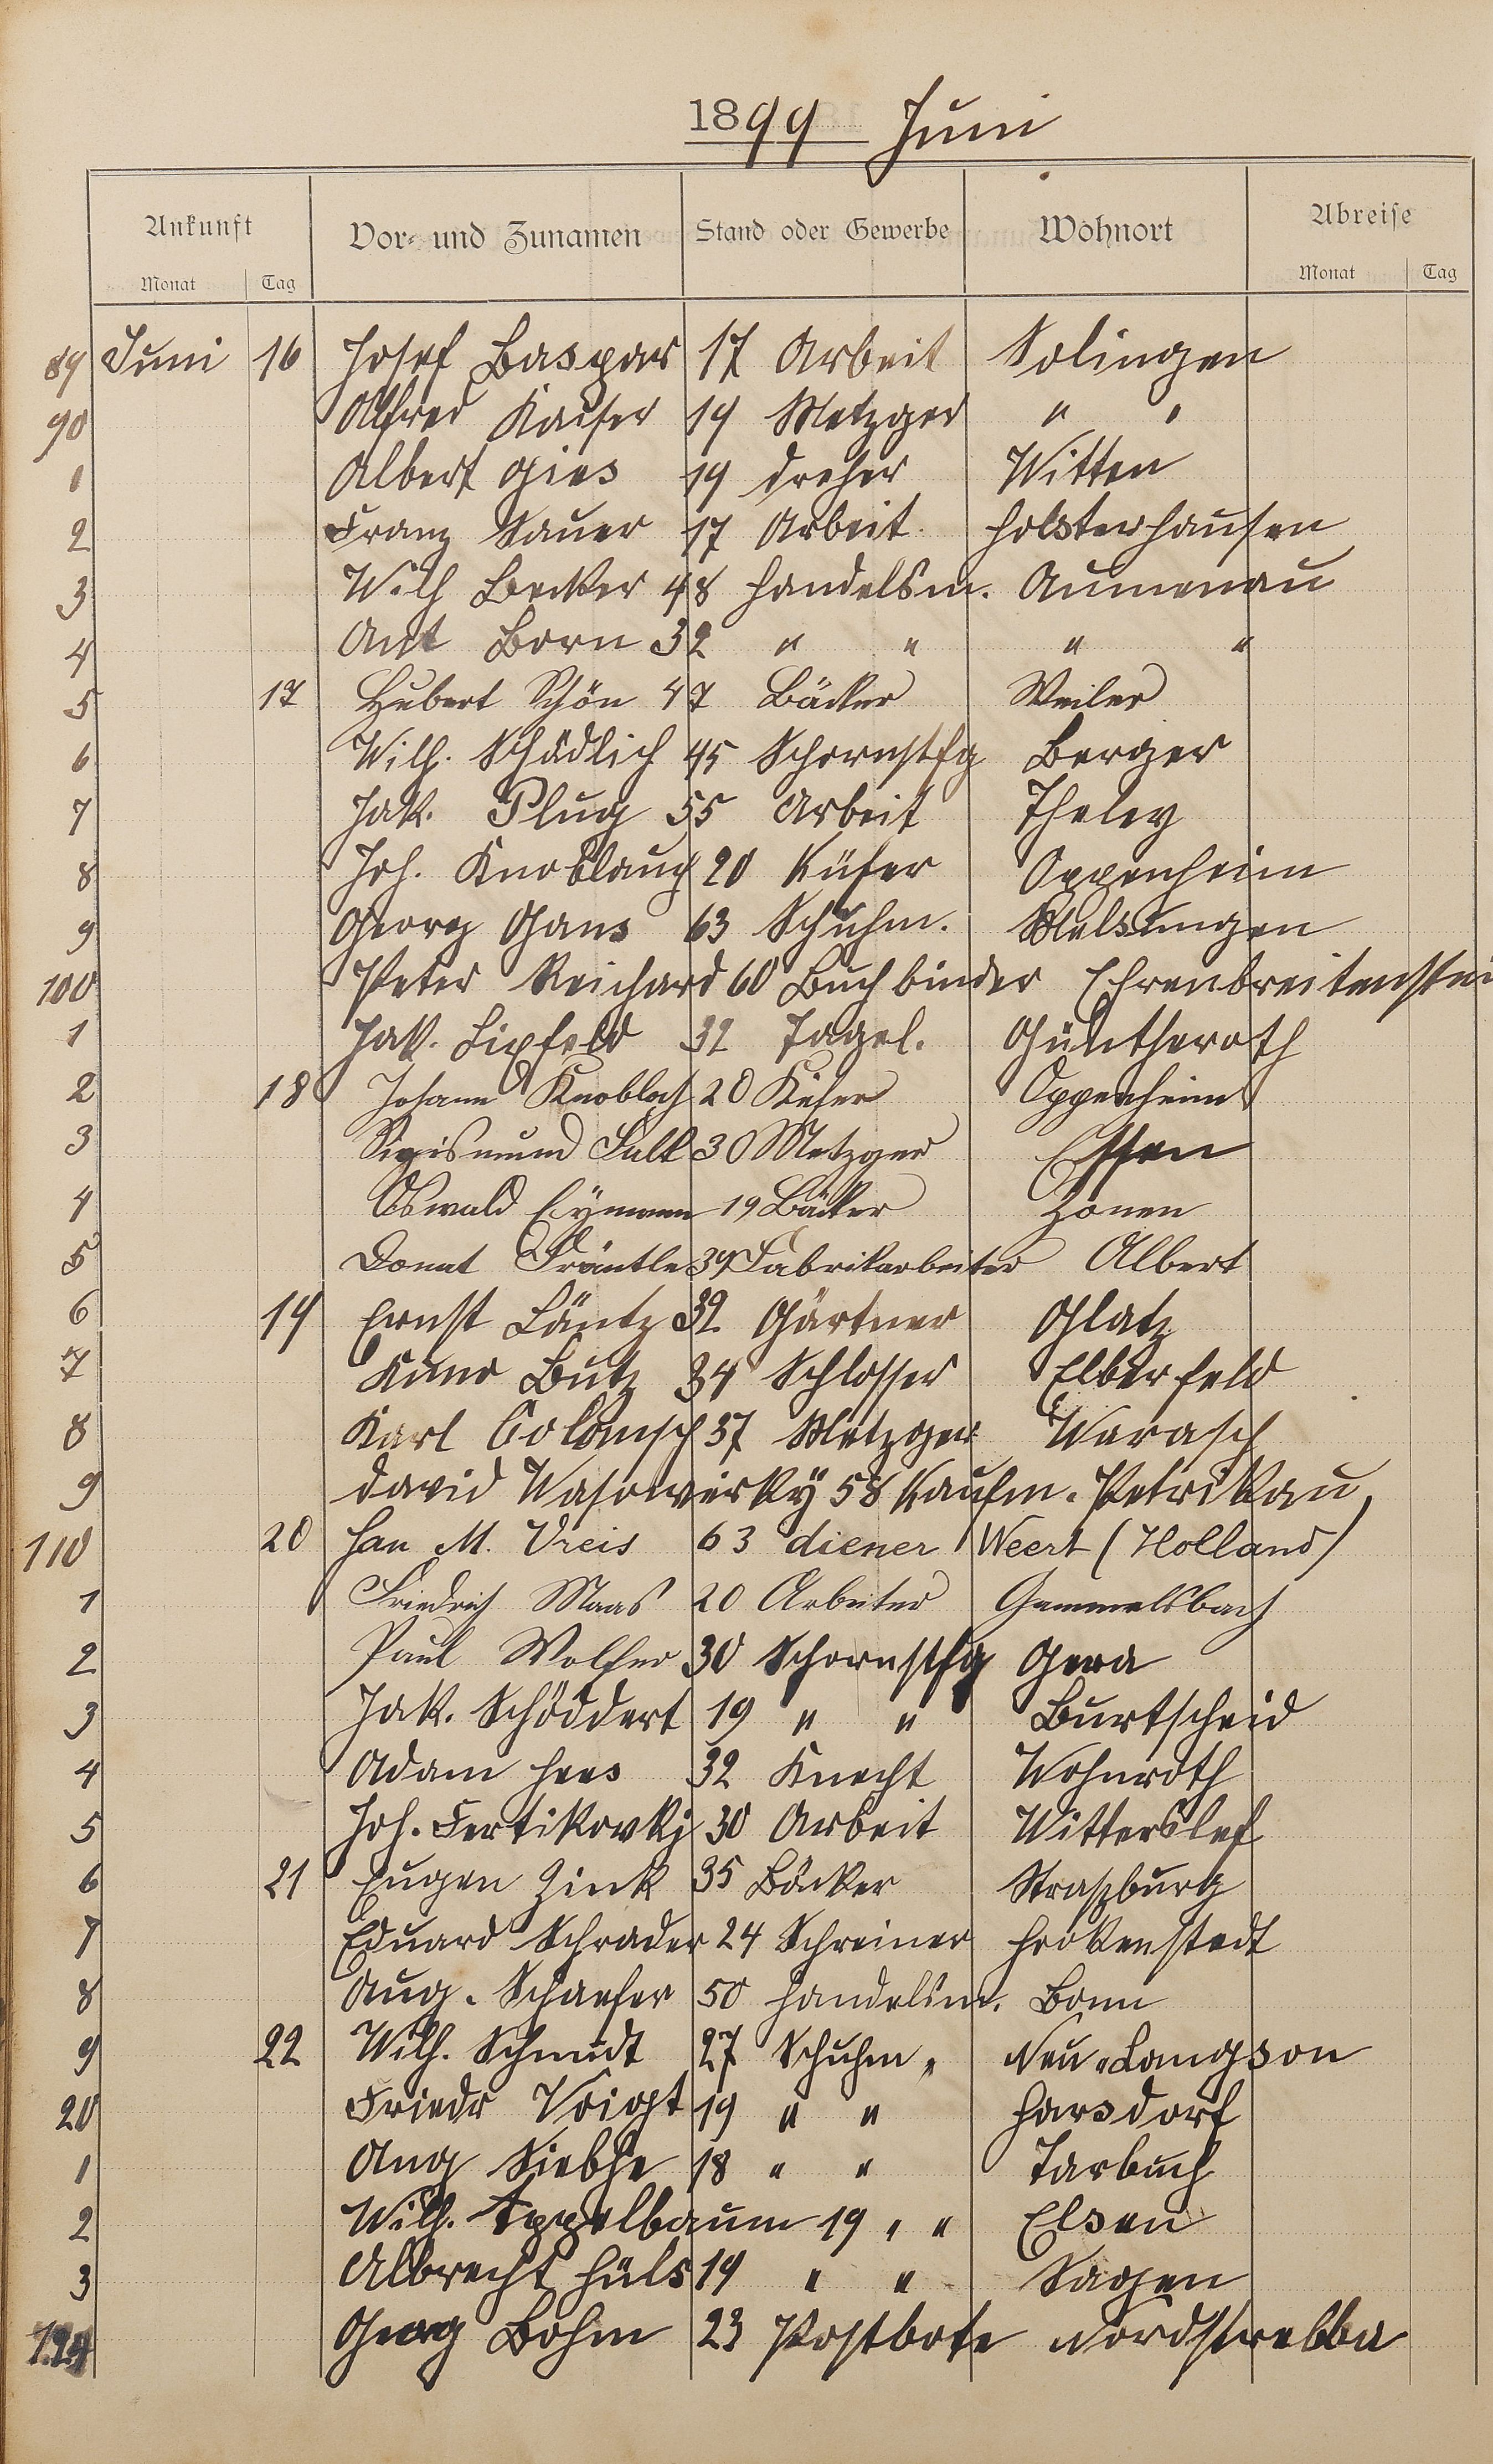 1899 Juni
Ankunft Vor- und Zunamen Stand oder Gewerbe Wohnort Abreise
Monat Tag Monat Tag
89 Juni 16 Josef Baspar 17 Arbeit Solingen
90 Alfred Kaiser 19 Metzger " "
1 Albert Gies 19 Dreher Witten
2 Franz Sauer 17 Arbeit. Holsterhausen
3 Wilh Becker 48 Handelsm. Aumenau
4 Ant Born 32 " " " "
5 17 Hubert Schön 47 Bäcker Weiler
6 Wilh. Schädlich 45 Schornstfg Berger
7 Jak. Plug 55 Arbeit Tholey
8 Joh. Knoblauch 20 Küfer Oppenheim
9 Georg Gans 63 Schuhm. Melsungen
100 Peter Reichard 60 Buchbinder Ehrenbreitenstei
1 Jak. Lipfeld 32 Tagel. Güntheroth
2 18 Johann Knobloch 20 Kiefer Oppenheim
3 Sigismund Falk 30 Metzger Essen
4 Oswald Eymann 19 Bäcker Zonen
5 Donat Träntle 39 Fabrikarbeiter Albert
6 19 Ernst Läntz 39 Gärtner Glatz
7 Kuno Butz 34 Schlosser Elberfeld
8 Karl 37 Metzger Warasch
9 David 58 Kaufm. Petrikau
110 20 Jan M. Vreis 63 diener Weert (Holland)
1 Friedrich Maas 20 Arbeiter Gammelsbach
2 Paul Wolfer 30 Schornstfg Gera
3 Jak. Schöddert 19 " " Burtscheid
4 Adam Hees 32 Knecht Wohnroth
5 Joh. Fertikovkj 30 Arbeit Witterslef
6 21 Eugen Zink 35 Bäcker Straszburg
7 Eduard Schrader 24 Schreiner Hrokenstedt
8 Aug. Schaefer 50 Handelsm. Bonn
9 22 Wilh. Schmidt 27 Schuhm. Neu-Langson
20 Friedr Voigt 19 " " Harsdorf
1 Aug Siebhe 18 " " Tarbuch
2 Wilh. Appelbaum 19 " " Elsen
3 Albrecht Hüls 19 " " Sagen
124 Georg Bohm 23 Postbote